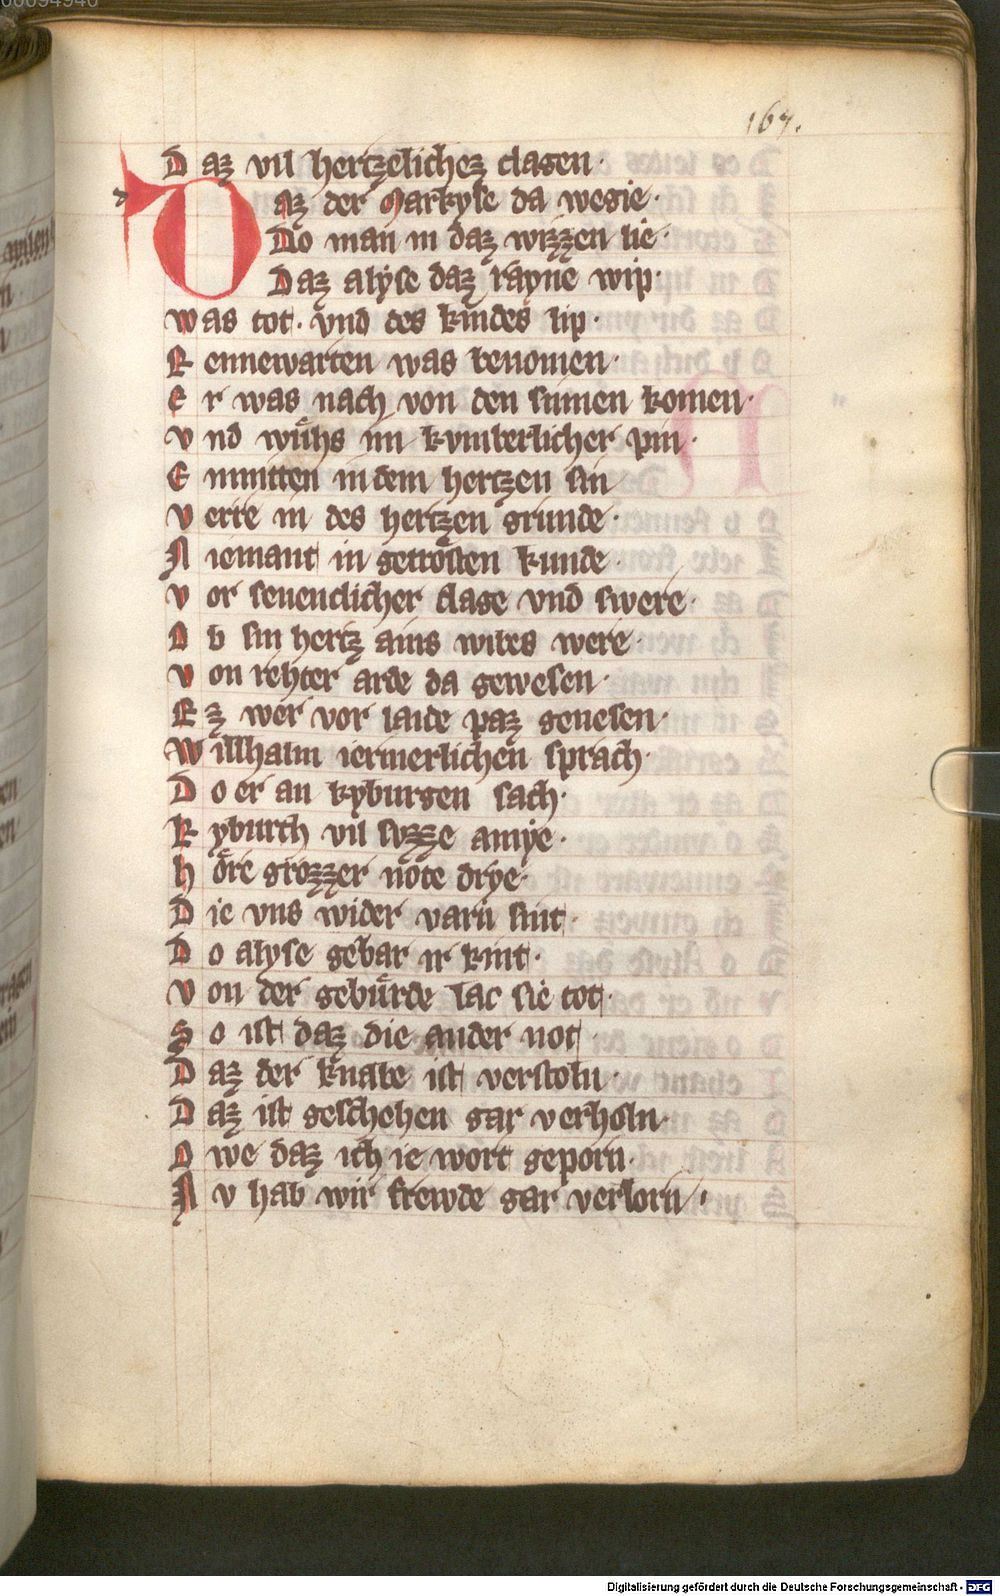 00094946
167.
Daz vil hertzelichez clagen·
d
Daz der Markyse da wegie·
Do man in daz wizzen lie·
Daz alyse daz rayne wip·
was tot· vnd des kindes lip·
Rennewarten was benomen·
Er was nach von den sinnen komen·
vnd wuͦhs im kvmberlicher pin·
Enmitten in dem hertzen sin
verre in des hertzen grunde·
Niemant in getrösten kunde·
vor senenclicher clage vnd swere·
Ob sin hertz ains wibes were·
von rehter arde da gewesen·
Ez wer vor laide paz genesen·
Willhalm iermerlichen sprach·
Do er an kyburgen sach·
Kyburch vil svzze amye·
höre grozzer nöte drye·
Die vns wider varn sint·
Do alyse gebar ir kint·
von der gebürde lac sie tot·
So ist daz die ander not·
Daz der knabe ist verstoln·
Daz ist geschehen gar verholn·
Owe daz ich ie wort geporn·
Nv hab wir frewde gar verlorn·
Digitalisierung gefördert durch die Deutsche Forschungsgemeinschaft - DFG